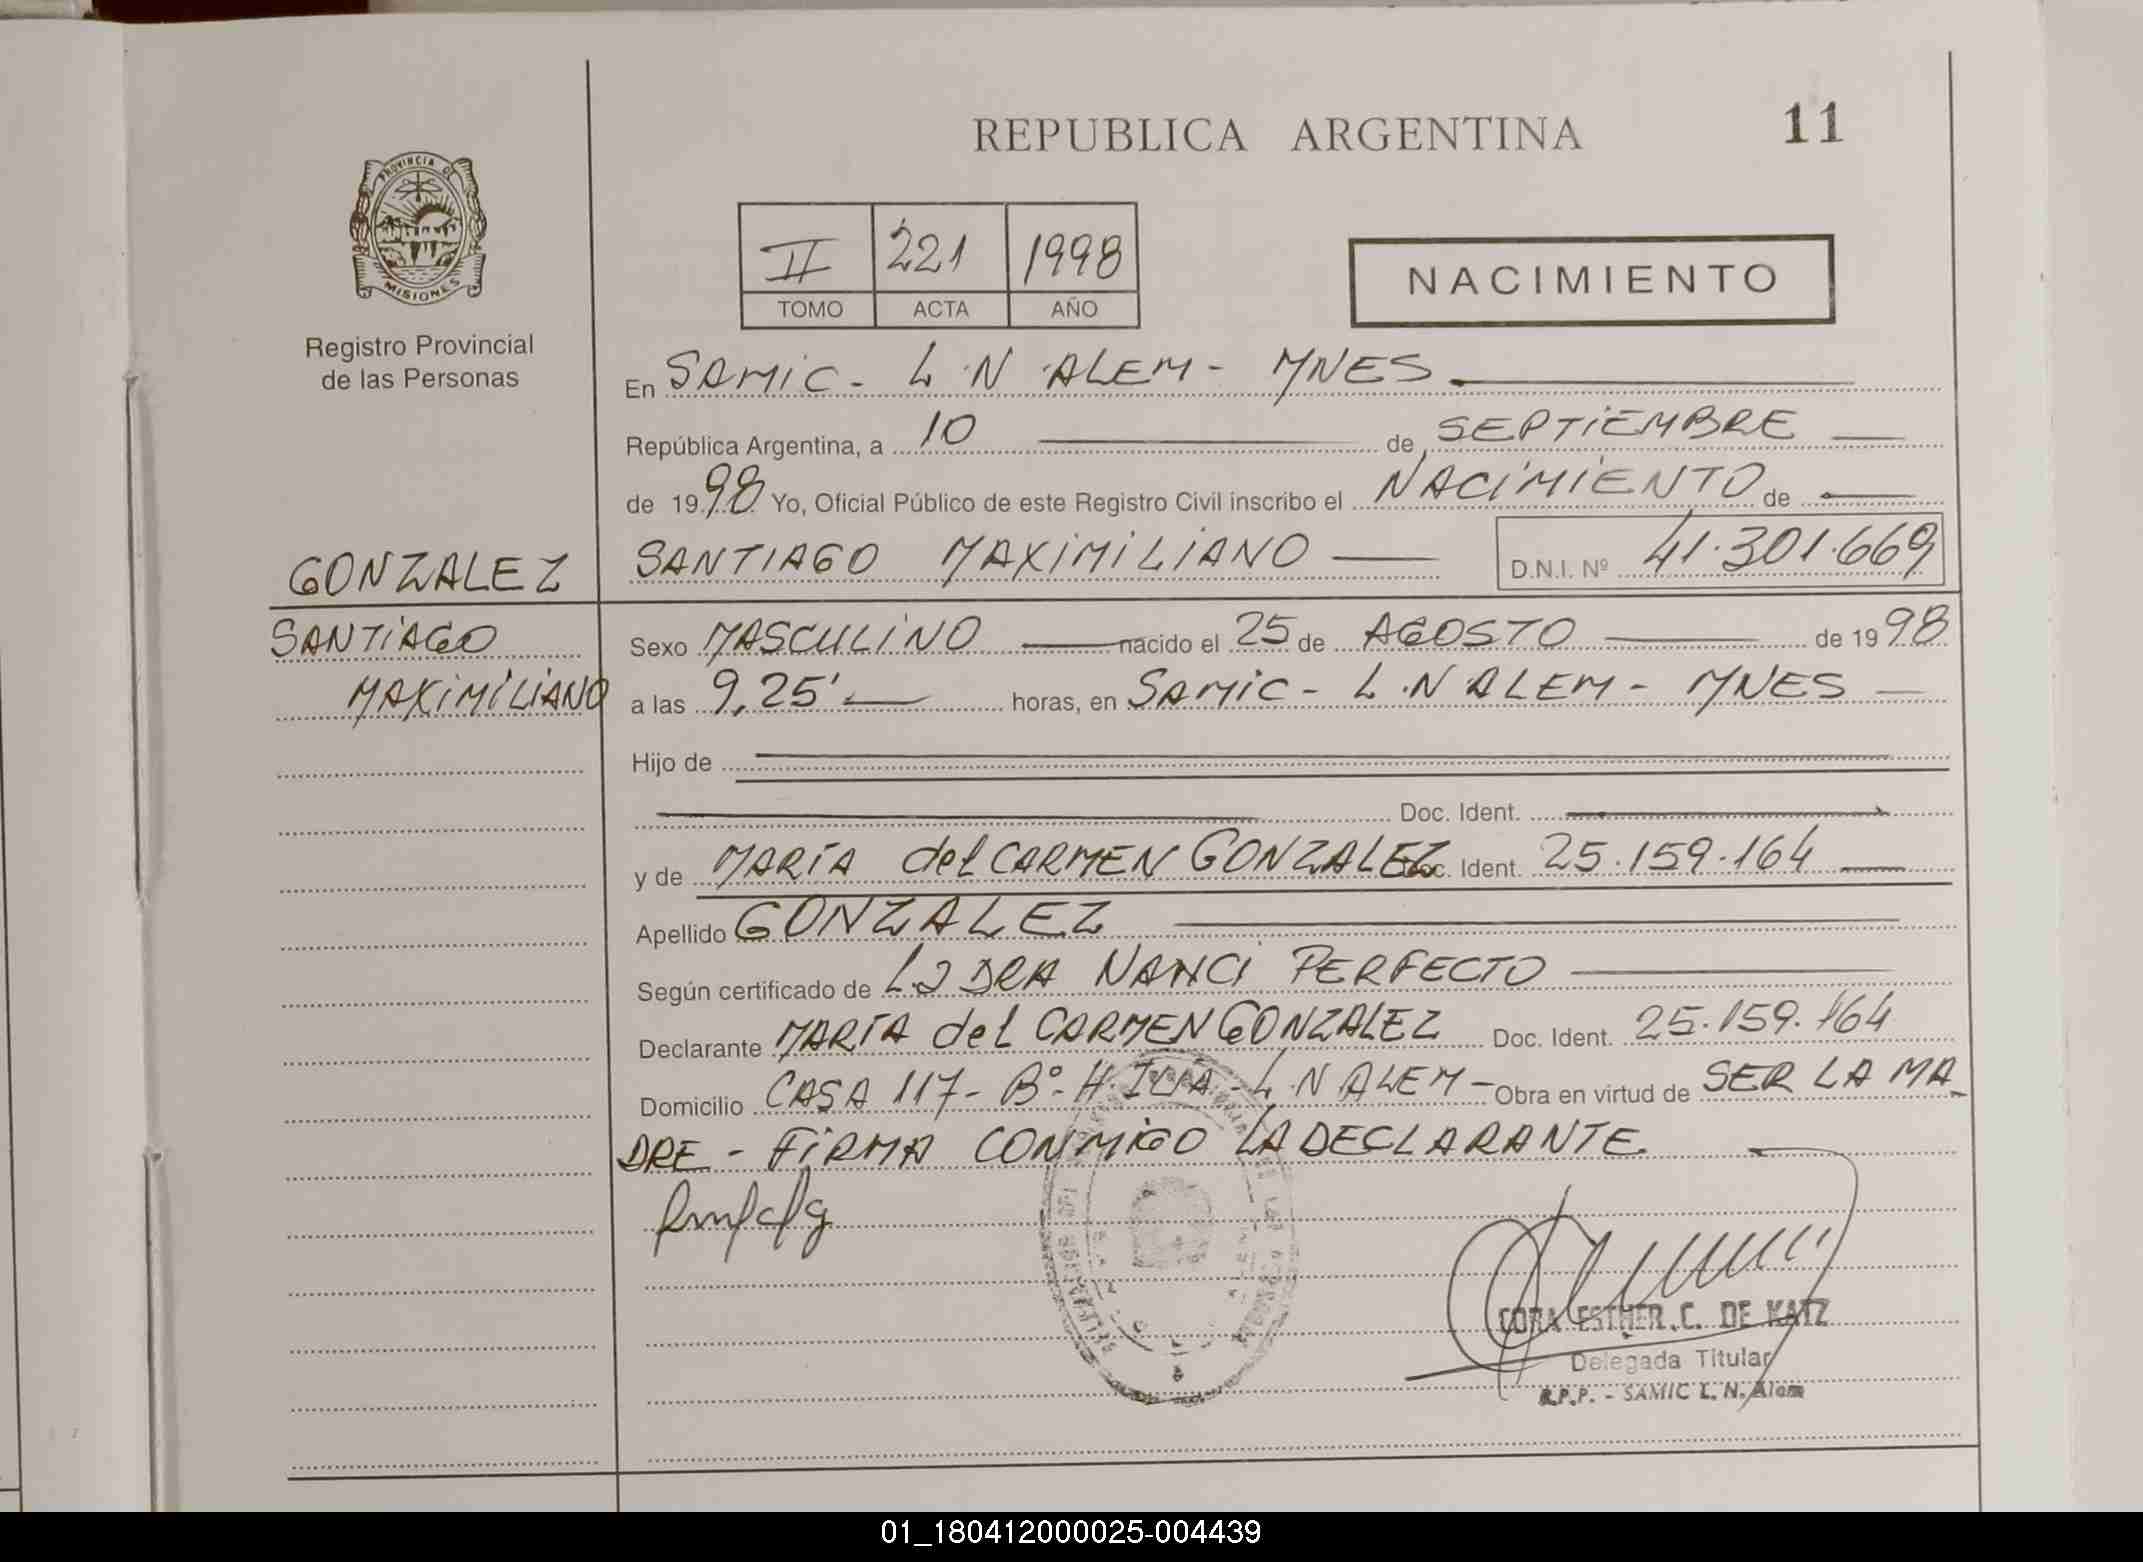 REPUBLICA ARGENTINA 11
PROVINCIA DE
MISIONES
Registro Provincial
de las Personas
II 221 1998
TOMO ACTA AÑO
NACIMIENTO
En SAMIC - L.N. ALEM - MNES
República Argentina, a 10 de SEPTIEMBRE
de 1998 Yo, Oficial Público de este Registro Civil inscribo el NACIMIENTO de
GONZALEZ
SANTIAGO MAXIMILIANO D.N.I. Nº 41.301.669
SANTIAGO
MAXIMILIANO
Sexo MASCULINO nacido el 25 de AGOSTO de 1998
a las 9,25' horas, en SAMIC - L.N ALEM - MNES
Hijo de
Doc. Ident.
y de MARÍA del CARMEN GONZALEZ Doc. Ident. 25.159.164
Apellido GONZALEZ
Según certificado de DRA NANCI PERFECTO
Declarante MARÍA del CARMEN GONZALEZ Doc. Ident. 25.159.164
Domicilio CASA 117 - Bº H. ILIA - L.N ALEM - Obra en virtud de SER LA MA
DRE - FIRMA CONMIGO LA DECLARANTE
CORA ESTHER C. DE KATZ
Delegada Titular
R.P.P. - SAMIC L. N. Alem
01_180412000025-004439